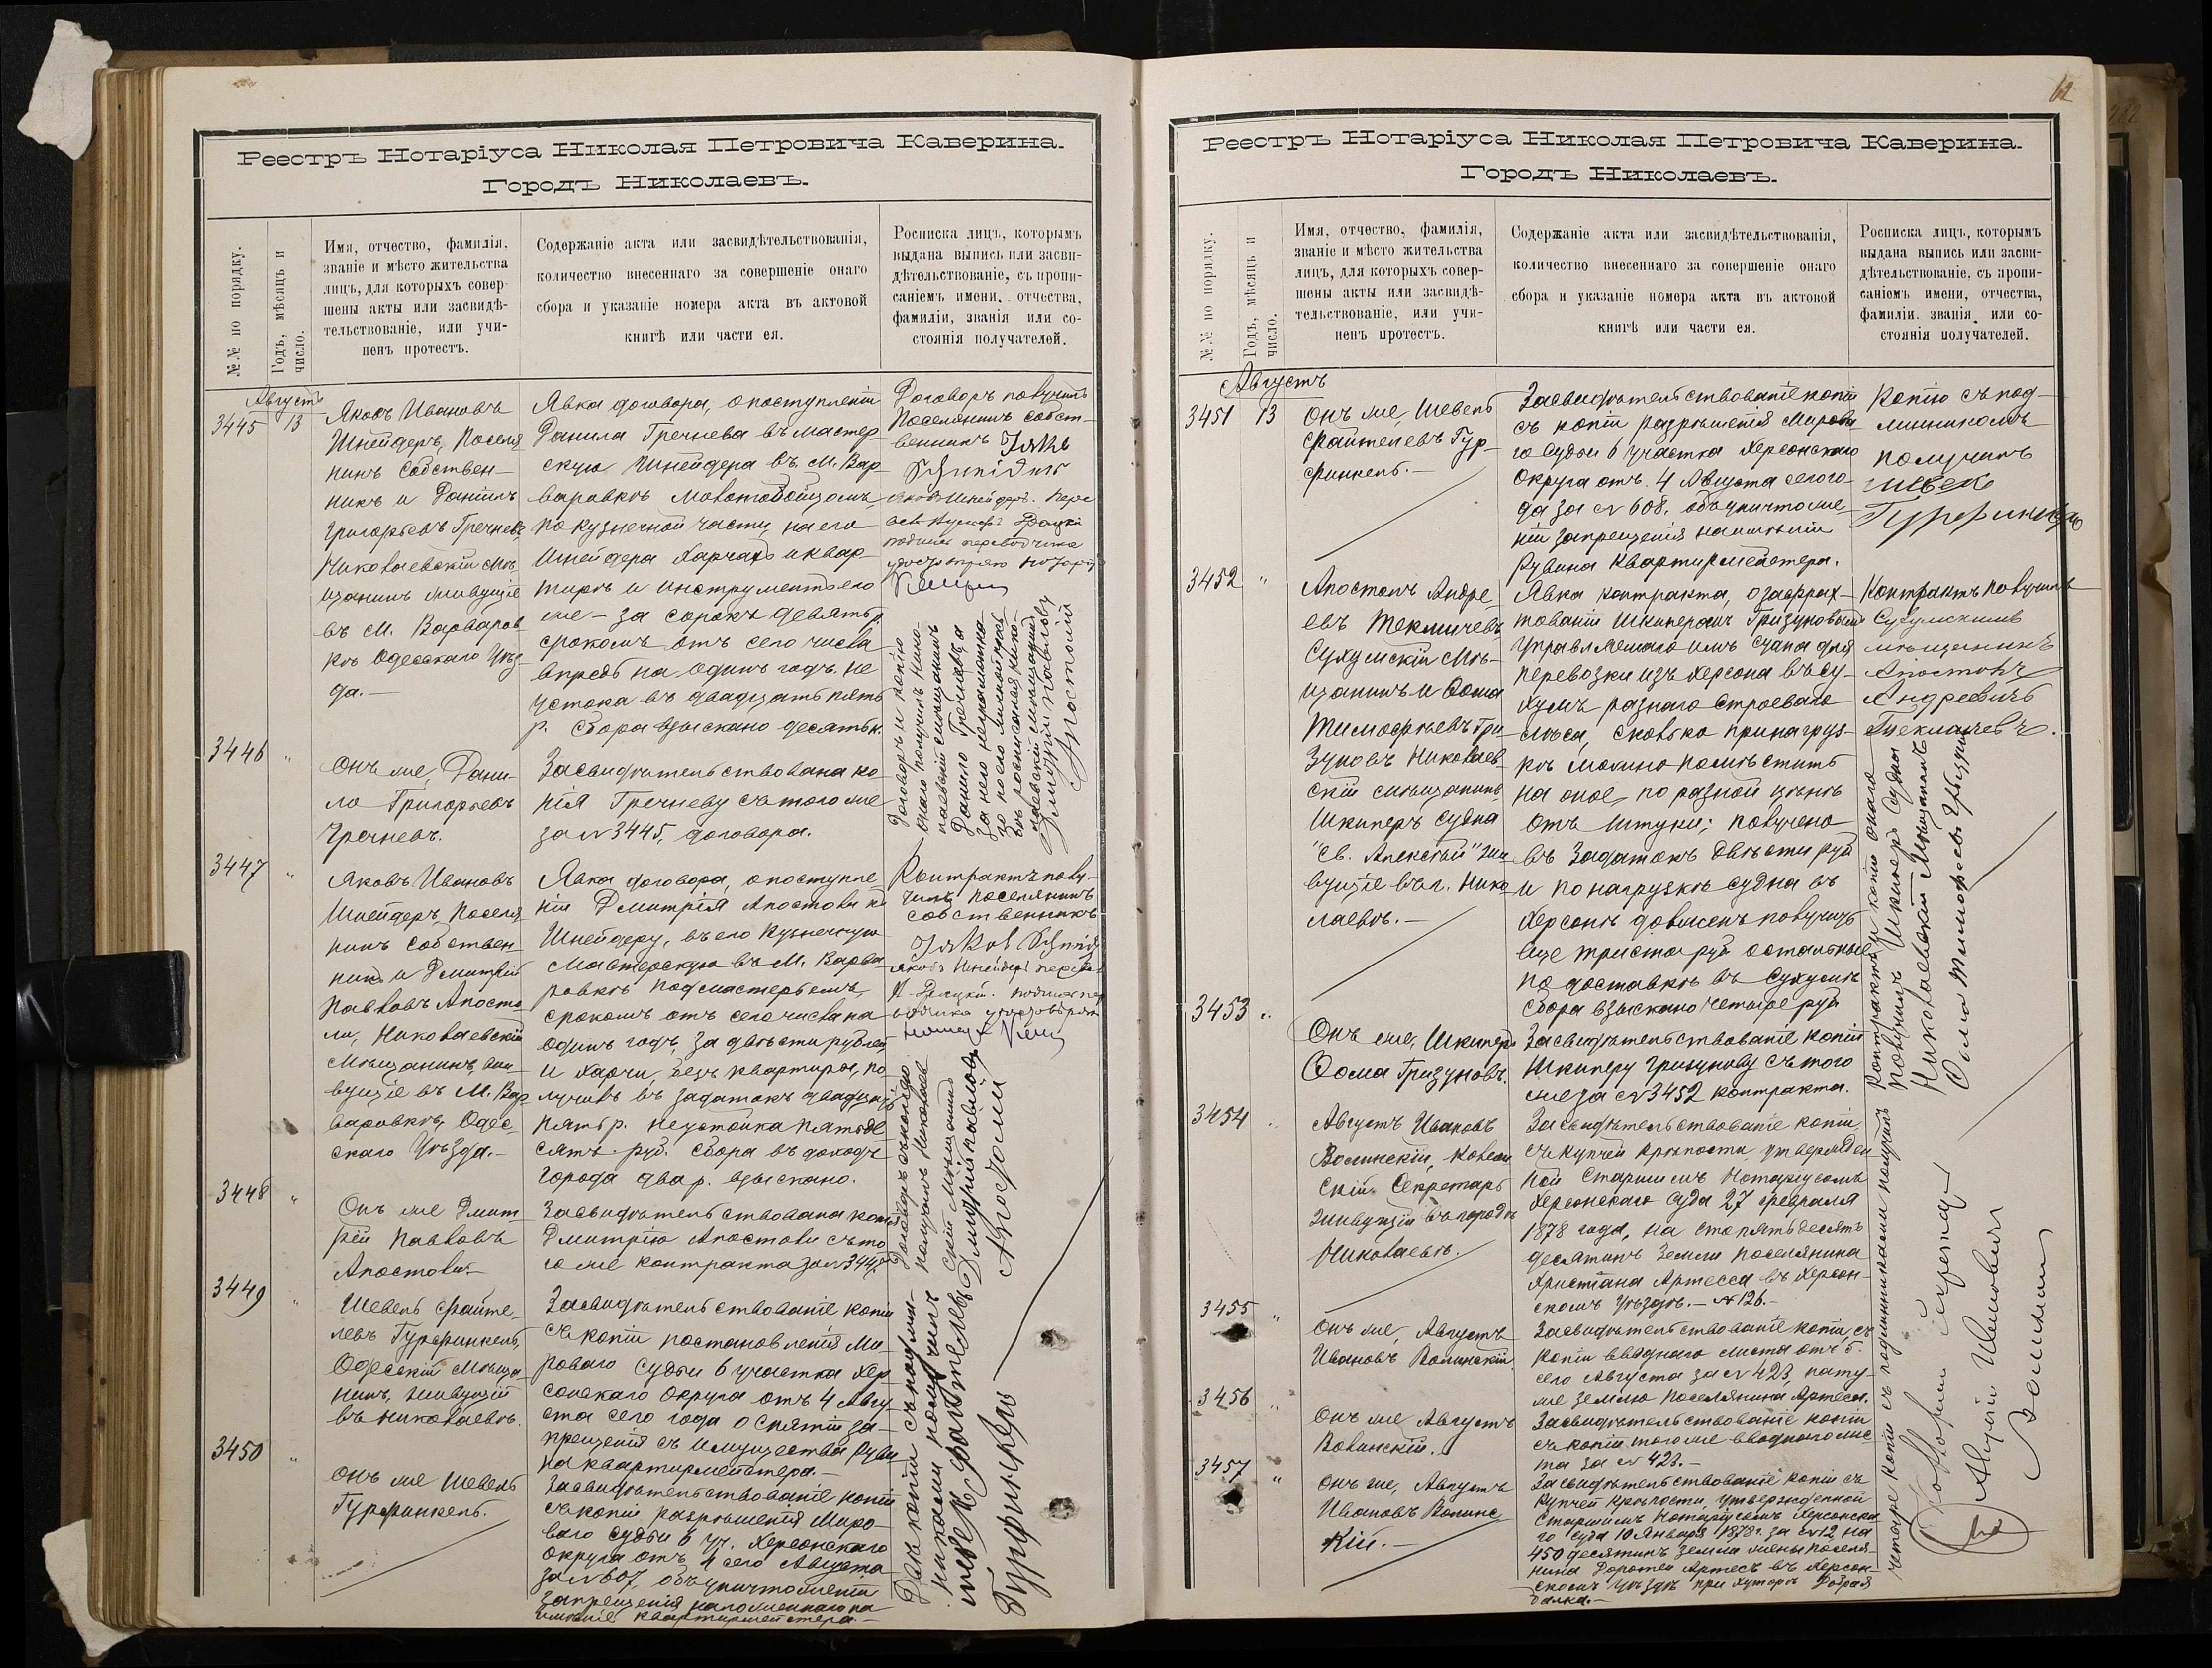 Реестръ Нотаріуса Николая Петровича Каверина.
Городъ Николаевъ.
№№ по порядку.
Годъ, мѣсяцъ и
число.
Имя, отчество, фамилія,
званіе и мѣсто жительства
лицъ, для которыхъ совер-
шены акты или засвидѣ-
тельствованіе, или учи-
ненъ протестъ.
Содержаніе акта или засвидѣтельствованія,
количество внесеннаго за совершеніе онаго
сбора и указаніе номера акта въ актовой
книгѣ или части ея.
Росписка лицъ, которымъ
выдана выпись или засви-
дѣтельствованіе, съ пропи-
саніемъ имени, отчества,
фамиліи, званія или со-
стоянія получателей.
Августъ
3445 13
Яковъ Ивановъ
Шнейдеръ, Поселя
нинъ Собствен-
никъ и Даніилъ
Григорьевъ Гречневъ
Николаевскій мѣ-
щанинъ живущіе
въ М. Варваров
кѣ Одесскаго Уѣз-
да.-
Явка договора, о поступленіи
Данила Гречнева въ мастер-
скую Шнейдера въ М. Вар-
варовкѣ молотобойцомъ,
по кузнечной части, на его
Шнейдера харчахъ и квар-
тирѣ и инструментъ его
же - за сорокъ девять р.
срокомъ отъ сего числа
впредь на одинъ годъ. не
устойка въ двадцать пять
р. Сбора взыскано десять к.
Договоръ получилъ
Поселянинъ собст-
венникъ
Яковъ Шнейдеръ.
подпись переводчика
3446 "
Онъ же, Дани-
ло Григорьевъ
Гречневъ.
Засвидѣтельствована ко-
пія Гречневу съ того же
за № 3445, договора.
Договоръ и копію
онаго получилъ Нико-
лаевскій мѣщанинъ
Данило Гречневъ, а
за него неграмотнаго
по его личной прось-
бѣ росписался Нико-
лаевскій мѣщанинъ
Дмитрій Павловъ
Апостолій
3447 "
Яковъ Ивановъ
Шнейдеръ, поселя
нинъ собствен-
никъ и Дмитрій
Павловъ Апосто
ли, Николаевскій
Мѣщанинъ, жи-
вущіе въ М. Вар
варовкѣ, Одес-
скаго Уѣзда.-
Явка договора, о поступле
ніи Дмитрія Апостоли къ
Шнейдеру, въ его Кузнечную
Мастерскую въ М. Варва
ровкѣ подмастерьемъ,
срокомъ отъ сего числа на
одинъ годъ, за двѣсти рублей
и харчи, безъ квартиры, по
лучивъ въ задатокъ двадцать
пять р. неустойка пятьде
сятъ руб. Сбора въ доходъ
города два р. взыскано.
Контрактъ полу-
чилъ поселянинъ
собственникъ
Яковъ Шнейдеръ
3448 "
Онъ же Дмит-
рій Павловъ
Апостоли.-
Засвидѣтельствована копія
Дмитрію Апостоли съ то
го же контракта за № 3447.
Дмитрій Павловъ
Апостоли
3449 "
Шевель Файте-
левъ Гурфинкель,
Одесскій Мѣща-
нинъ, живущій
въ Николаевѣ.
Засвидѣтельствованіе копіи
съ копіи постановленія Ми-
роваго Судьи 6 участка Хер-
сонскаго Округа отъ 4 Авгу-
ста сего года о снятіи за-
прещенія съ имущества Руви
на Квартирмейстера.-
3450 "
Онъ же Шевель
Гурфинкель.
Засвидѣтельствованіе копіи
съ копіи разрѣшенія Миро-
ваго Судьи 6 уч. Херсонскаго
Округа отъ 4 сего Августа
за № 607, объ уничтоженіи
запрещенія наложеннаго на
имѣніе Квартирмейстера.-
Двѣ копіи съ подлин-
никами получилъ
Шевель Файтелевъ
Гурфинкель
12
Реестръ Нотаріуса Николая Петровича Каверина.
Городъ Николаевъ.
№№ по порядку.
Годъ, мѣсяцъ и
число.
Имя, отчество, фамилія,
званіе и мѣсто жительства
лицъ, для которыхъ совер-
шены акты или засвидѣ-
тельствованіе, или учи-
ненъ протестъ.
Содержаніе акта или засвидѣтельствованія,
количество внесеннаго за совершеніе онаго
сбора и указаніе номера акта въ актовой
книгѣ или части ея.
Росписка лицъ, которымъ
выдана выпись или засви-
дѣтельствованіе, съ пропи-
саніемъ имени, отчества,
фамиліи, званія, или со-
стоянія получателей.
Августъ
3451 13
Онъ же, Шевель
Файтелевъ Гур-
финкель.-
Засвидѣтельствованіе копіи
съ копіи разрѣшенія Мирова
го Судьи 6 участка Херсонскаго
Округа отъ 4 Августа сего го-
да за № 608, объ уничтоже-
ніи запрещенія на имѣніи
Рувина Квартирмейстера.
Копію съ под-
линникомъ
получилъ
Шевель
Гурфинкель
3452 "
Апостолъ Андре-
евъ Текличевъ
Сухумскій Мѣ-
щанинъ и Ѳома
Тимофѣевъ Гри-
зуновъ Николаев-
скій мѣщанинъ,
Шкиперъ судна
"Св. Алексѣй" жи-
вущіе въ г. Нико
лаевѣ.-
Явка контракта, о зафрах-
тованіи Шкиперомъ Гризуновымъ
управляемаго имъ судна для
перевозки изъ Херсона въ Су-
хумъ разнаго строеваго
лѣса, сколько при нагруз-
кѣ можно помѣстить
на оное, по разной цѣнѣ
отъ штуки; получено
въ задатокъ двѣсти руб
и по нагрузкѣ судна въ
Херсонѣ долженъ получить
еще триста руб остальные
по доставкѣ въ Сухумъ
Сбора взыскано четыре руб
Контрактъ получилъ
Сухумскій
мѣщанинъ
Апостолъ
Андреевичъ
3453 "
Онъ же, Шкиперъ
Ѳома Гризуновъ.
Засвидѣтельствованіе копіи
Шкиперу Гризунову съ того
же за № 3452 контракта.
Контрактъ и копію онаго
получилъ Шкиперъ судна
Николаевскій Мѣщанинъ
3454 "
Августъ Ивановъ
Волинскій, Коллеж
скій Секретарь
живущій въ городѣ
Николаевѣ.
Засвидѣтельствованіе копіи,
съ купчей крѣпости утвержден
ной Старшимъ Нотаріусомъ
Херсонскаго Суда 27 февраля
1878 года, на сто пятьдесятъ
десятинъ земли поселянина
Христіана Артесса въ Херсон-
скомъ уѣздѣ.- № 126.-
3455 "
Онъ же, Августъ
Ивановъ Волинскій
Засвидѣтельствованіе копіи, съ
копіи вводнаго листа отъ 5.
сего Августа за № 423, на ту-
же землю поселянина Артеса.
3456 "
Онъ же Августъ
Волинскій.
Засвидѣтельствованіе копіи
съ копіи того же вводнаго лис
та за № 423.-
3457 "
Онъ же, Августъ
Ивановъ Волинс
кій.-
Засвидѣтельствованіе копіи съ
купчей крѣпости, утвержденной
Старшимъ Нотаріусомъ Херсонска
го Суда 10 Января 1878 г. за № 12 на
450 десятинъ земли жены поселя-
нина Доротеи Артесъ въ Херсон-
скомъ уѣздѣ при хуторѣ Добрая
балка.-
Четыре копіи съ подлинниками получилъ